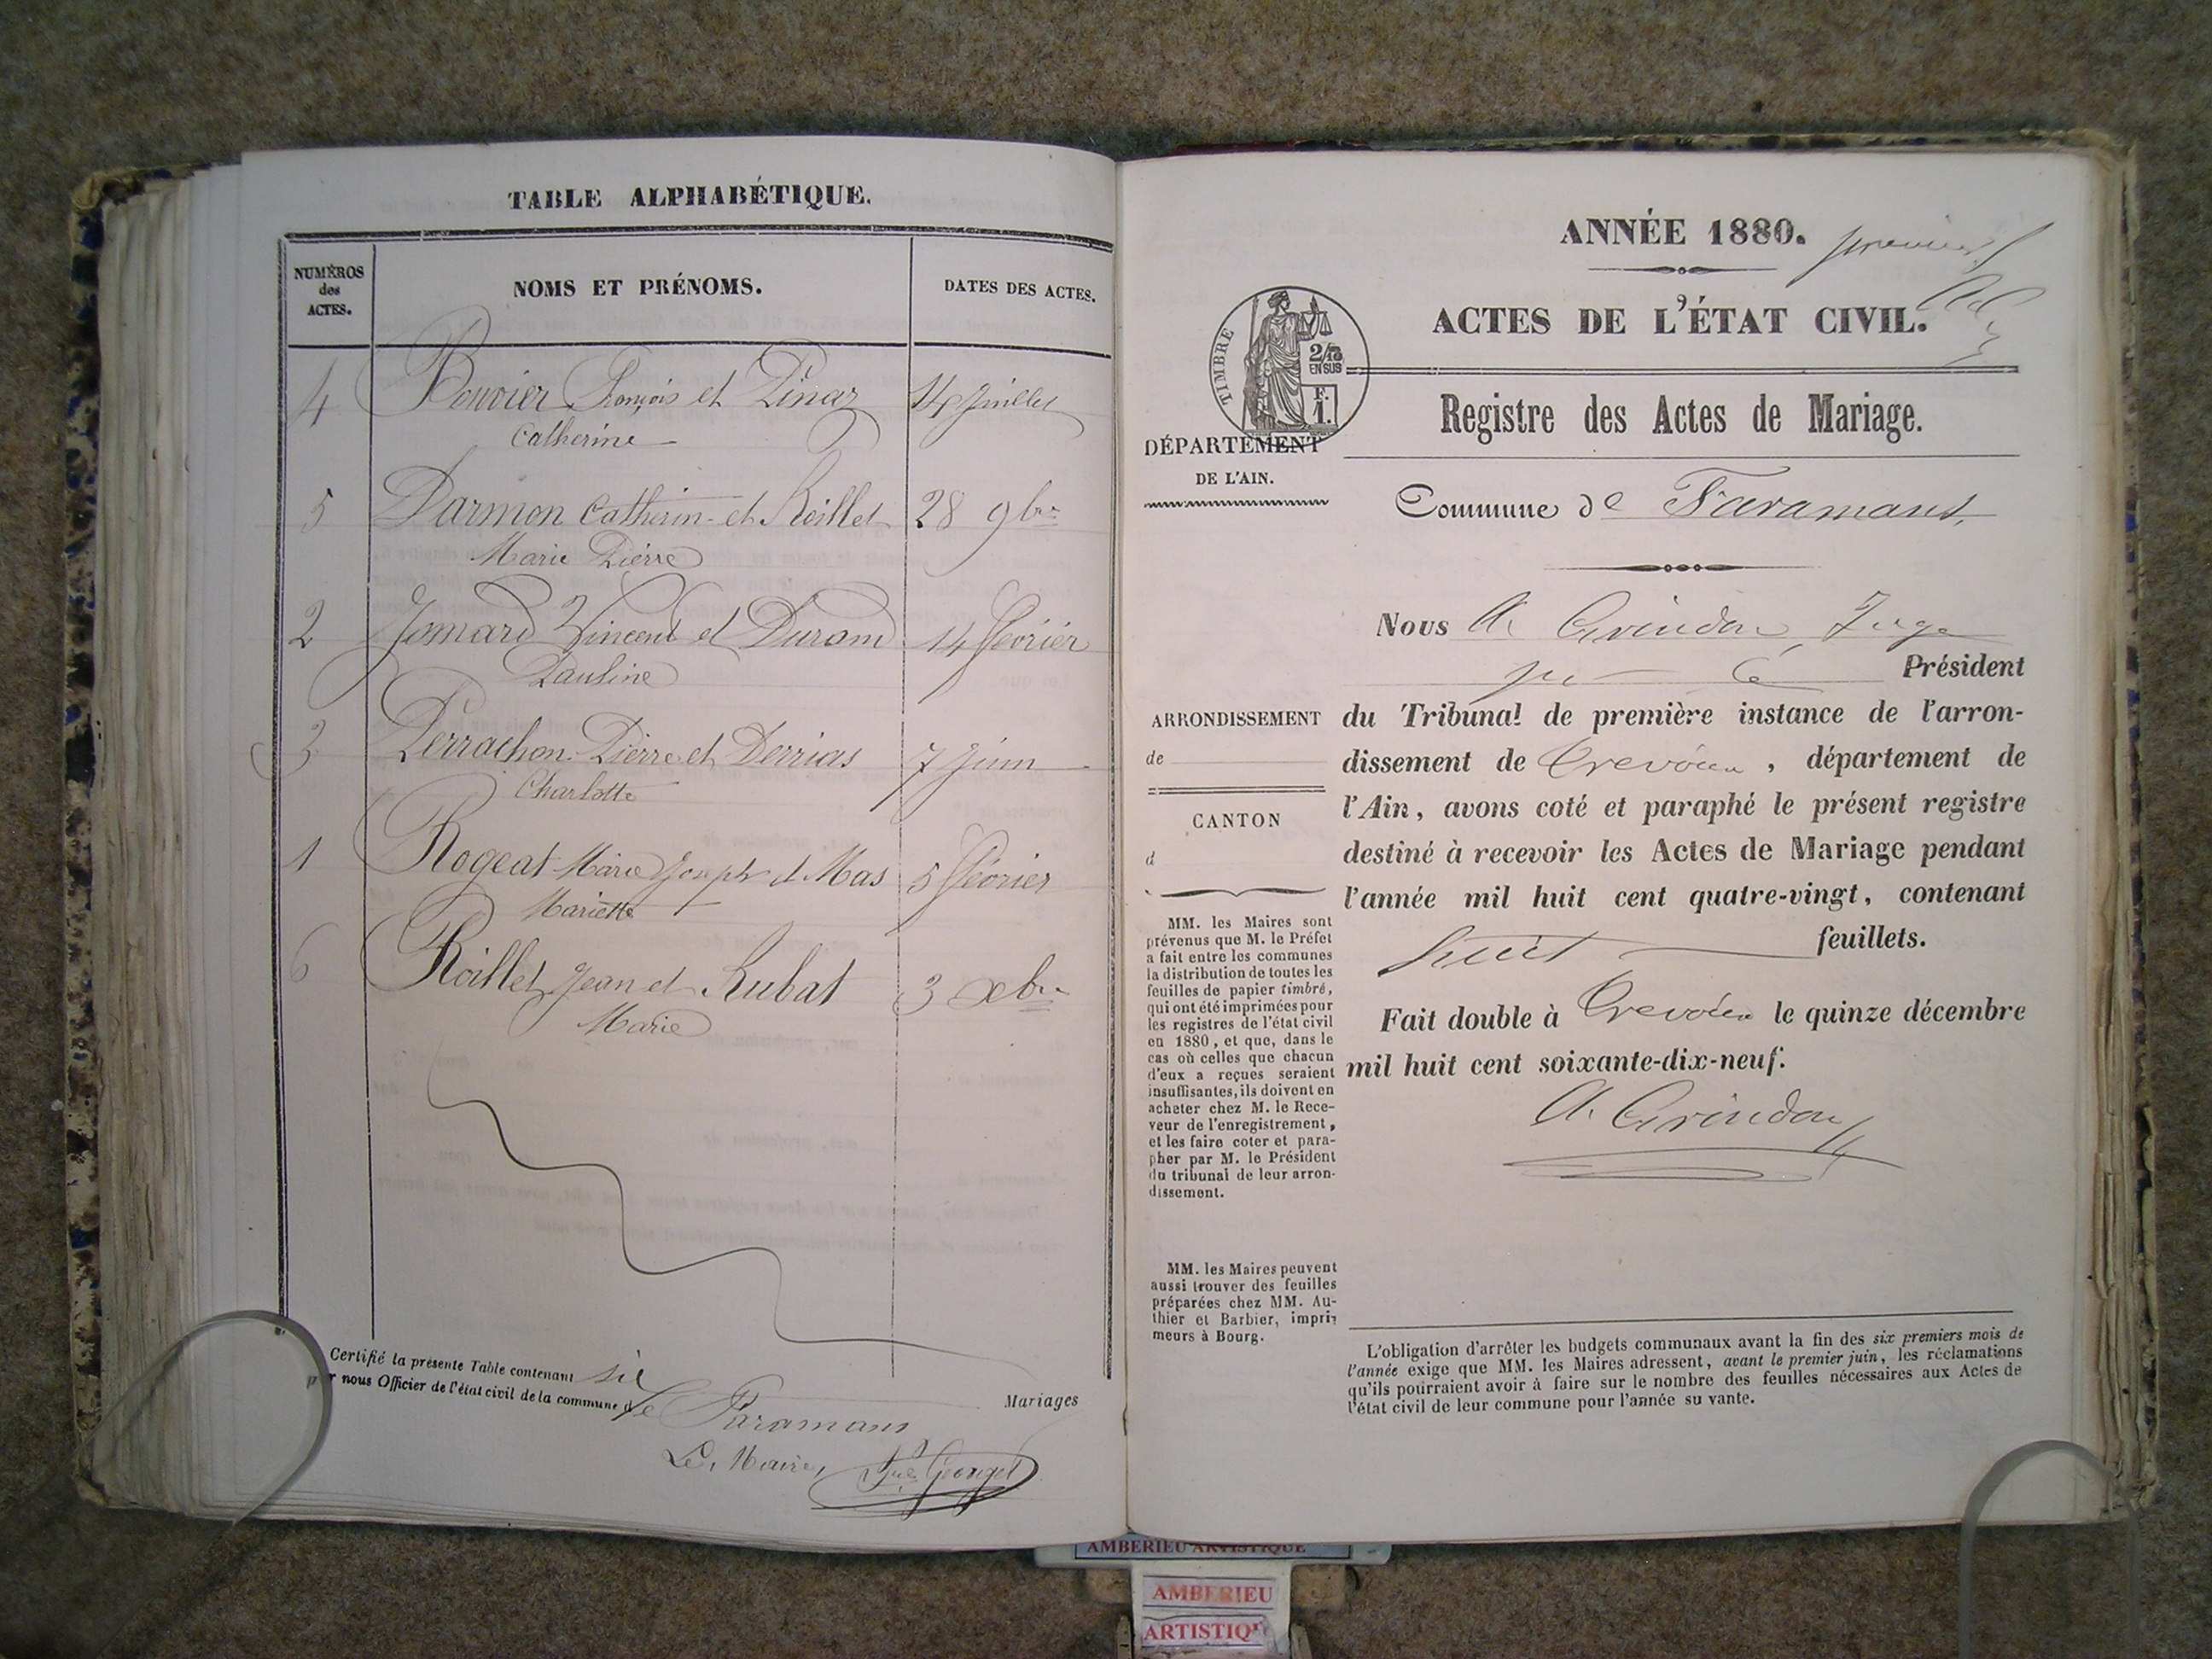 TABLE ALPHABÉTIQUE.
NUMÉROS
des
ACTES.
NOMS ET PRÉNOMS.
DATES DES ACTES.
4 Bouvier François et Pinaz 14 Juillet
Catherine
5 Darmon Catherin et Roillet 28 9bre
Marie Pierre
2 Jomard Vincent et Durand 14 Février
Pauline
3 Perrachon Pierre et Derrias 7 Juin
Charlotte
1 Rogeat Marie Joseph et Mas 5 Février
Mariette
6 Roillet Jean et Rubat 3 xbre
Marie
Certifié la présente Table contenant six Mariages
par nous Officier de l'état civil de la commune de Faramans
Le Maire,
ANNÉE 1880. premier
ACTES DE L'ÉTAT CIVIL.
TIMBRE
2/10
EN SUS
F.
1.
Registre des Actes de Mariage.
DÉPARTEMENT
DE L'AIN.
Commune de Faramans,
Nous A. Juge
Président
ARRONDISSEMENT
de
CANTON
d
du Tribunal de première instance de l'arron-
dissement de Trévoux, département de
l'Ain, avons coté et paraphé le présent registre
destiné à recevoir les Actes de Mariage pendant
l'année mil huit cent quatre-vingt, contenant
huit feuillets.
Fait double à Trévoux le quinze décembre
mil huit cent soixante-dix-neuf.
MM. les Maires sont
prévenus que M. le Préfet
a fait entre les communes
la distribution de toutes les
feuilles de papier timbré,
qui ont été imprimées pour
les registres de l'état civil
en 1880, et que, dans le
cas où celles que chacun
d'eux a reçues seraient
insuffisantes, ils doivent en
acheter chez M. le Rece-
veur de l'enregistrement,
et les faire coter et para-
pher par M. le Président
du tribunal de leur arron-
dissement.
MM. les Maires peuvent
aussi trouver des feuilles
préparées chez MM. Au-
thier et Barbier, impri-
meurs à Bourg.
L'obligation d'arrêter les budgets communaux avant la fin des six premiers mois de
l'année exige que MM. les Maires adressent, avant le premier juin, les réclamations
qu'ils pourraient avoir à faire sur le nombre des feuilles nécessaires aux Actes de
l'état civil de leur commune pour l'année su vante.
AMBERIEU ARTISTIQUE
AMBERIEU
ARTISTIQ